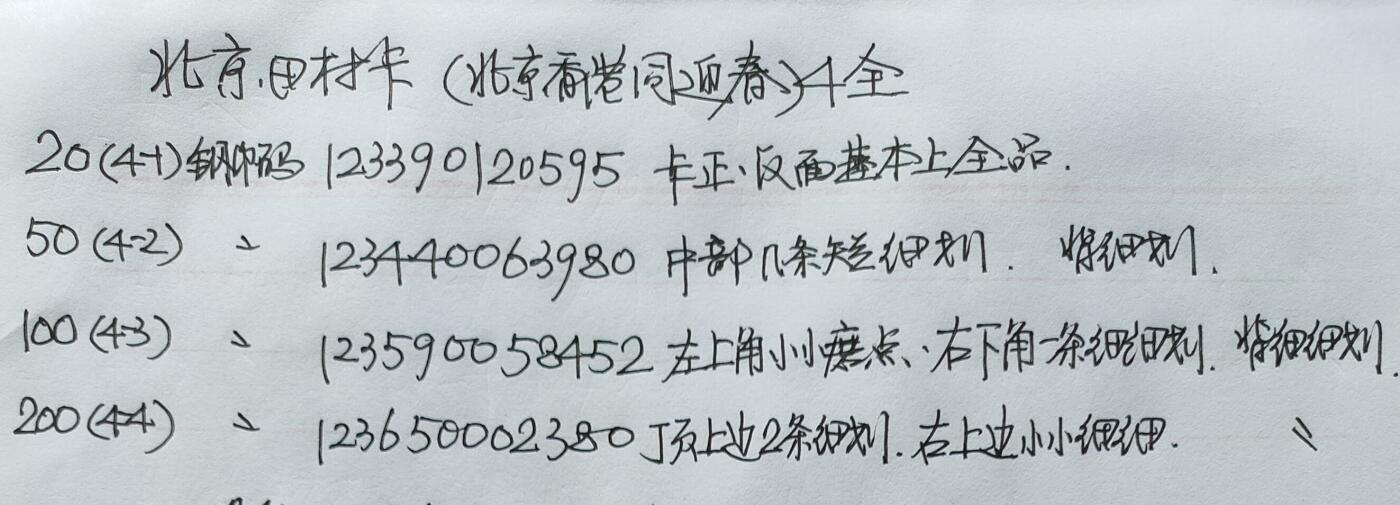 北京田村卡(北京香港同迎春)4全
20(4-1)钢印码 123390120595 卡正、反面基本上全品.
50(4-2) 〃 123440063980 中部几条短细划. 背细划.
100(4-3) 〃 123590058452 左上角小小磨点、右下角一条细细划. 背细细划.
200(4-4) 〃 123650002380 顶上边2条细划. 右上边小小细细. 〃